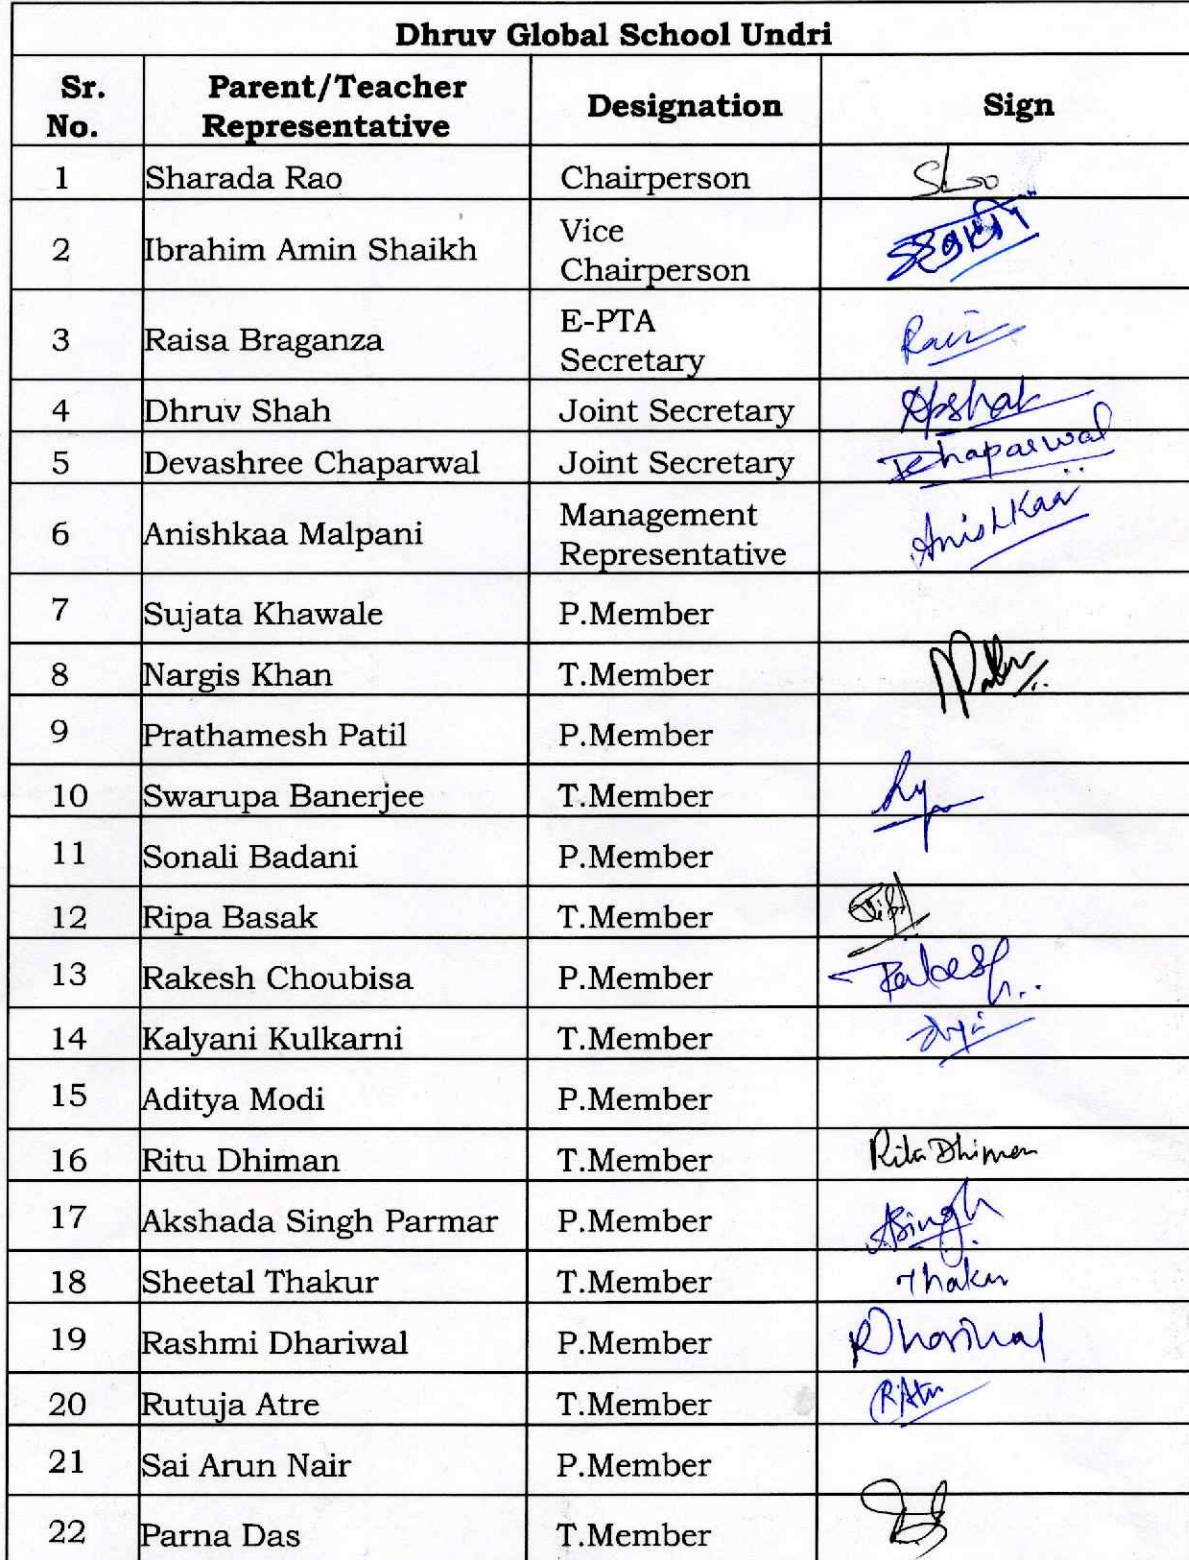 Dhruv Global School Undri
Sr. No. Parent/Teacher Representative Designation Sign
1 Sharada Rao Chairperson
2 Ibrahim Amin Shaikh Vice Chairperson
3 Raisa Braganza E-PTA Secretary
4 Dhruv Shah Joint Secretary
5 Devashree Chaparwal Joint Secretary Chaparwal
6 Anishkaa Malpani Management Representative Anishkaa
7 Sujata Khawale P.Member
8 Nargis Khan T.Member
9 Prathamesh Patil P.Member
10 Swarupa Banerjee T.Member
11 Sonali Badani P.Member
12 Ripa Basak T.Member
13 Rakesh Choubisa P.Member Rakesh
14 Kalyani Kulkarni T.Member
15 Aditya Modi P.Member
16 Ritu Dhiman T.Member Ritu Dhiman
17 Akshada Singh Parmar P.Member ASingh
18 Sheetal Thakur T.Member Thakur
19 Rashmi Dhariwal P.Member RDhariwal
20 Rutuja Atre T.Member R.Atre
21 Sai Arun Nair P.Member
22 Parna Das T.Member